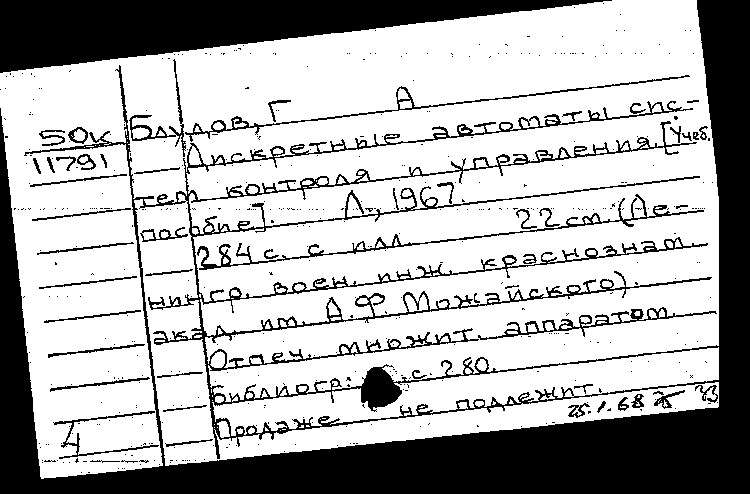 50К Блудов, Г А
11791 Дискретные автоматы сис-
тем контроля и управления. [Учеб.
пособие]. Л., 1967.
284 с. с илл. 22 см. (Ле-
нингр. воен. инж. краснознам.
акад. им. А.Ф. Можайского).
Отпеч. множит. аппаратом.
Библиогр: с. 280.
Продаже не подлежит.
4 25.1.68